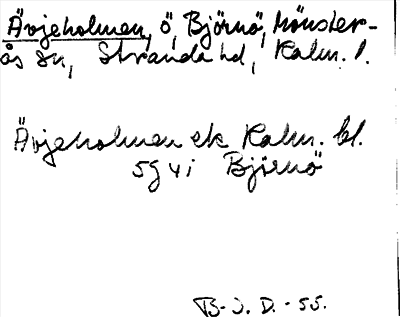 Ävjeholmen, ö, Björnö, Mönster-
ås sn, Stranda hd, Kalm. l.
Ävjeholmen ek Kalm. bl.
5g vi Björnö
B-J. D. - 55.